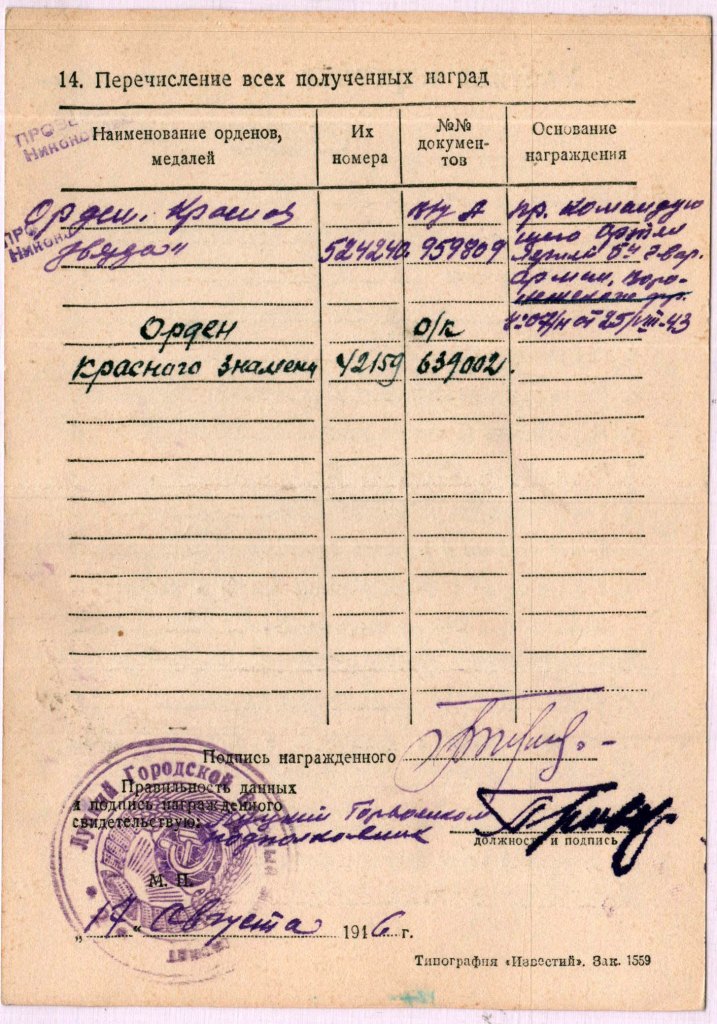 14. Перечисление всех полученных наград
Наименование орденов, медалей
Их номера
№№ документов
Основание награждения
Орден. Красная
звезда"
524240
КНуА
959809
пр. Командую
щего Артил
5й гвар.
армии, Воро-
от 25/VIII.43
Орден
Красного Знамени
42159
О/к
639002.
Подпись награжденного
Правильность данных
и подпись награжденного
свидетельствую:
Луцкий Горвоенком
подполковник
должность и подпись
Луцкий Городской
М. П.
„17" Августа 1946 г.
Типография «Известий». Зак. 1559